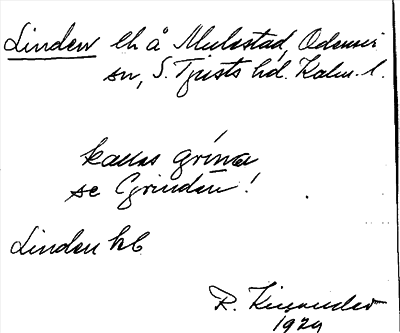 Linden lh å Mulestad, Odensvi
sn, S. Tjusts hd. Kalm. l.
kallas gri´nda
se Grindan!
Linden hb
R.
1929